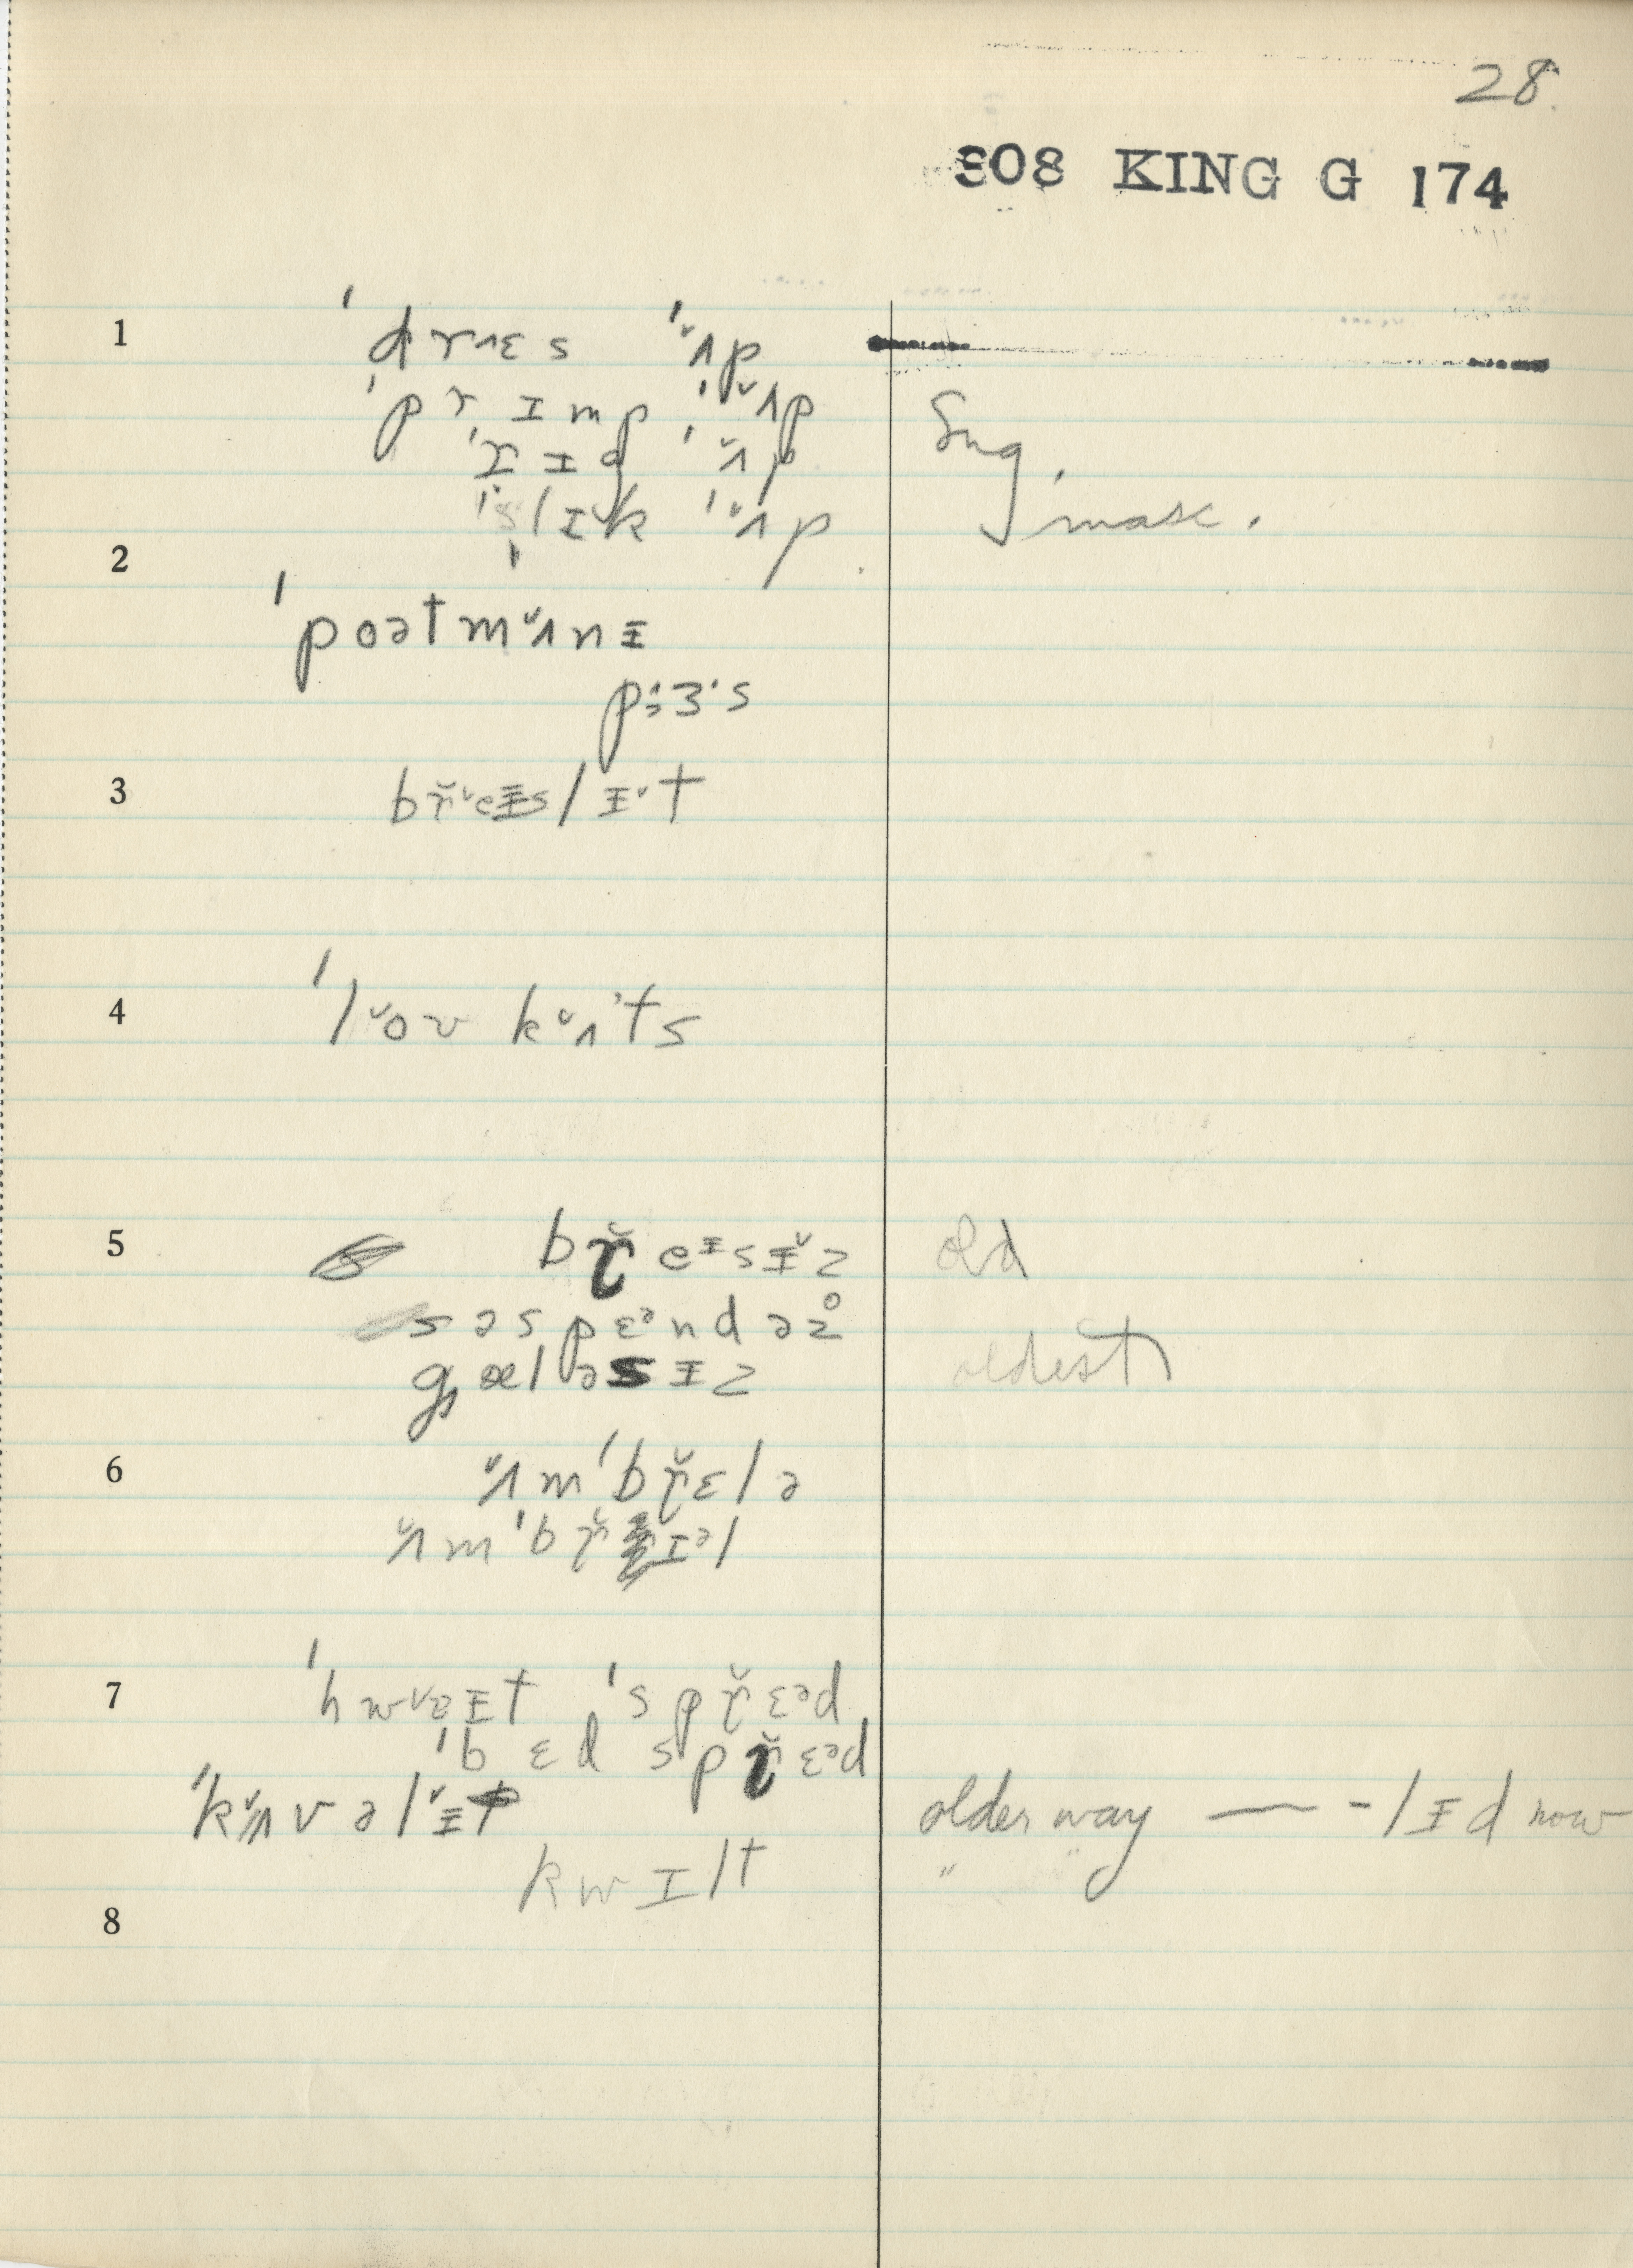 28.
808 KING G 174
1 ˈdrʌɛs ˈʌ̆p
ˈprɪmp ˈʌ̆p
ˈrɪg ˈʌ̆p Sug.
ˈslɪ̆k ˈʌ̆p masc.
2
ˈpoətmʌ̆nɪ̵
pɜˑs
3 br̆ɪ̵slɪ̵t
4 ˈlŏʊ kʌ̆ts
5 br̆eɪsɪ̵̆z old
səspɛᵊndəz̥
gæləsɪ̵z oldest
6 ʌ̆mˈbr̆ɛlə
ʌ̆mˈbr̆ɪᵊl
7 ˈhwɐɪ̵t ˈspr̆ɛᵊd
ˈbɛd spr̆ɛᵊd
ˈkʌ̆vəlɪ̵̆t older way — -lɪ̵d now
kwɪlt " "
8